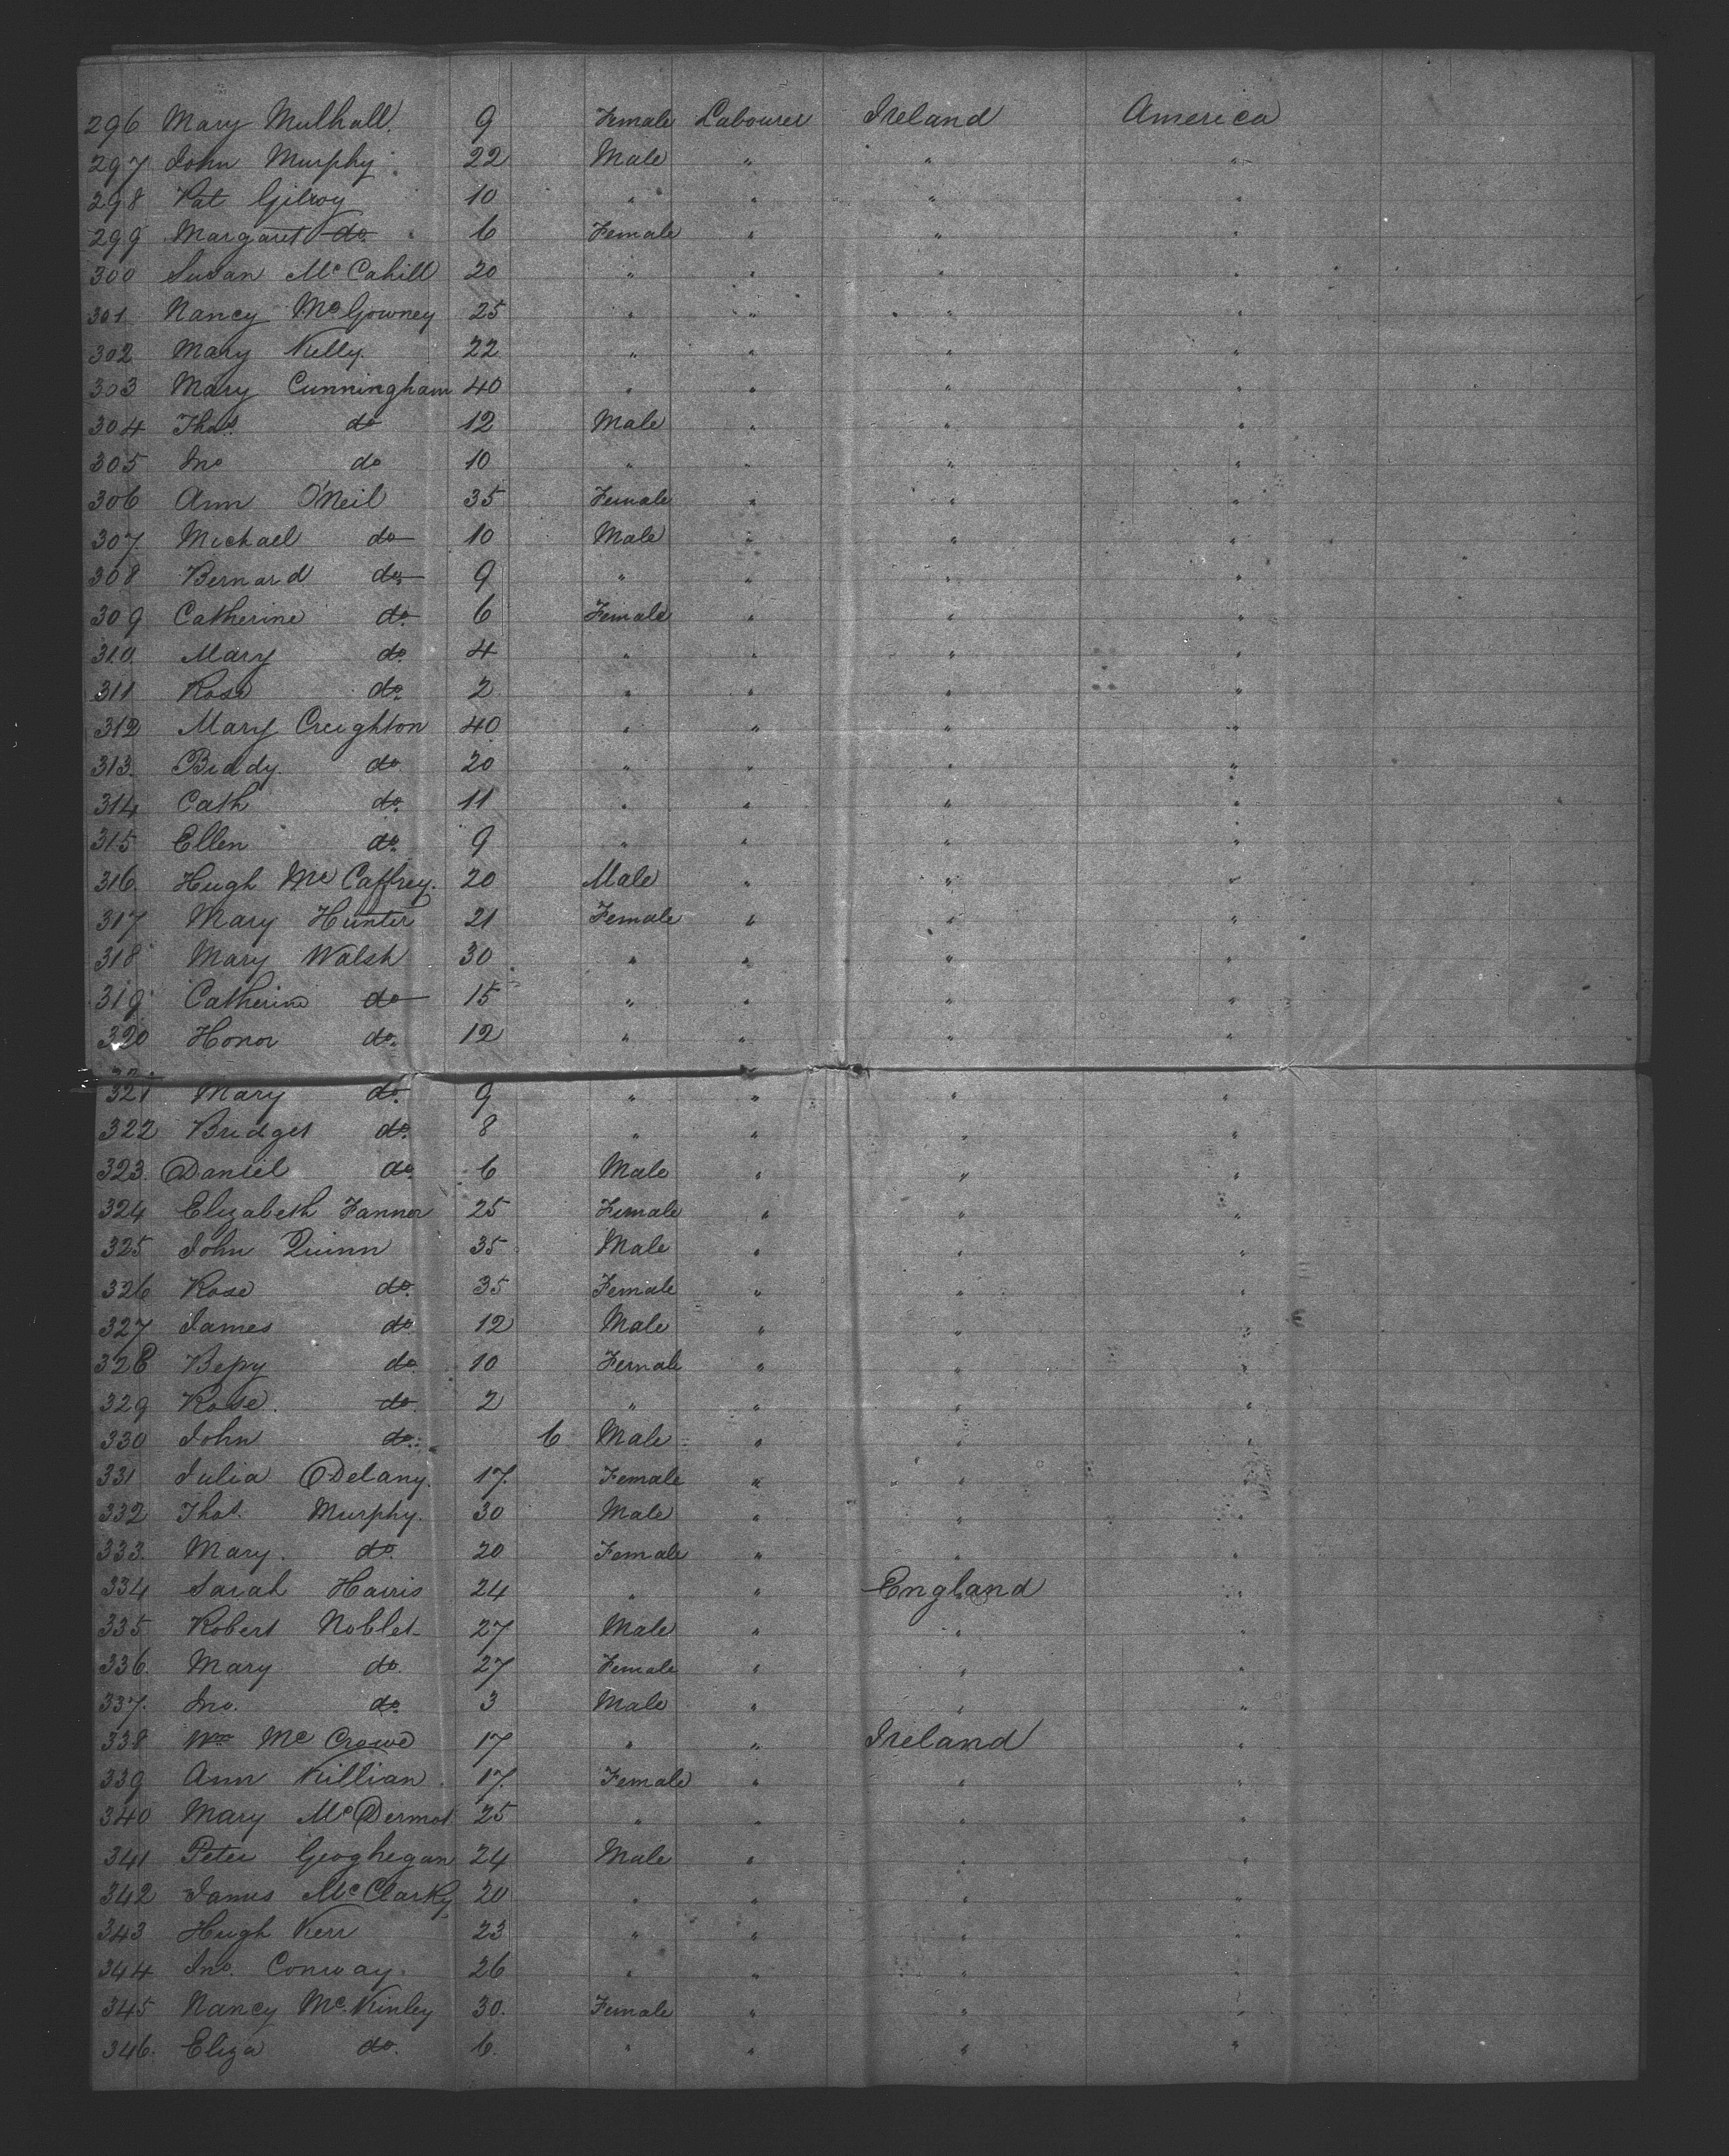 296 Mary Mulhall. 9 Female Labourer Ireland America
297 John Murphy 22 Male " " "
298 Pat Gilroy 10 " " " "
299 Margaret do 6 Female " " "
300 Susan McCahill 20 " " " "
301 Nancy McGowney 25 " " " "
302 Mary Kelly 22 " " " "
303 Mary Cunningham 40 " " " "
304 Thos. do 12 Male " " "
305 Jno do 10 " " " "
306 Ann O'Neil 35 Female " " "
307 Michael do 10 Male " " "
308 Bernard do. 9 " " " "
309 Catherine do. 6 Female " " "
310 Mary do. 4 " " " "
311 Rose do. 2 " " " "
312 Mary Creighton 40 " " " "
313. Biddy do 20 " " " "
314 Cath do. 11 " " " "
315 Ellen do. 9 " " " "
316 Hugh McCaffrey. 20 Male " " "
317 Mary Hunter 21 Female " " "
318 Mary Walsh 30 " " " "
319 Catherine do 15 " " " "
320 Honor do. 12 " " " "
321 Mary do. 9 " " " "
322 Bridget do. 8 " " " "
323. Daniel do. 6 Male " " "
324 Elizabeth Fannor 25 Female " " "
325 John Quinn 35 Male " " "
326 Rose do. 35 Female " " "
327 James do. 12 Male " " "
328 Bessy do 10 Female " " "
329 Rose. do. 2 " " " "
330 John do. 6 Male " " "
331 Julia Delany. 17. Female " " "
332 Thos. Murphy. 30 Male " " "
333. Mary. do. 20 Female " " "
334 Sarah Harris 24 " " England "
335 Robert Noblet 27 Male " " "
336. Mary do. 27 Female " " "
337. Jno. do. 3 Male " " "
338 Wm McCrowe 17 " " Ireland "
339 Ann Killian. 17. Female " " "
340 Mary McDermot 25 " " " "
341 Peter Geoghegan 24 Male " " "
342 James McClarky 20 " " " "
343 Hugh Kerr 23 " " " "
344 Jno. Conway. 26 " " " "
345 Nancy McKinley 30. Female " " "
346. Eliza do. 6. " " " "